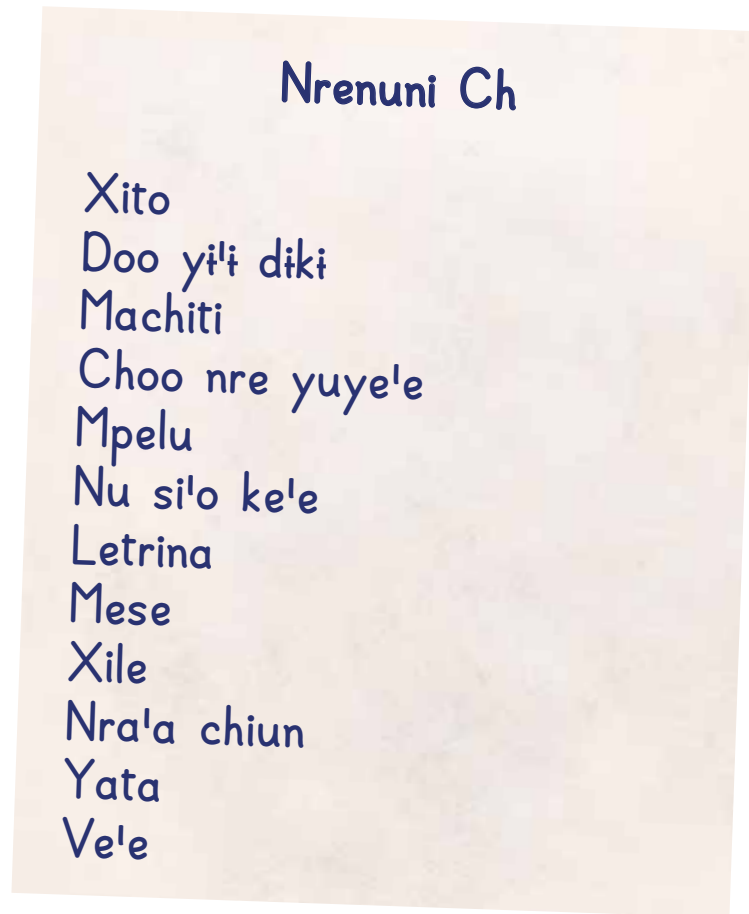 Nrenuni Ch
Xito
Doo yɨꞌɨ dɨkɨ
Machiti
Choo nre yuyeꞌe
Mpelu
Nu siꞌo keꞌe
Letrina
Mese
Xile
Nraꞌa chiun
Yata
Veꞌe